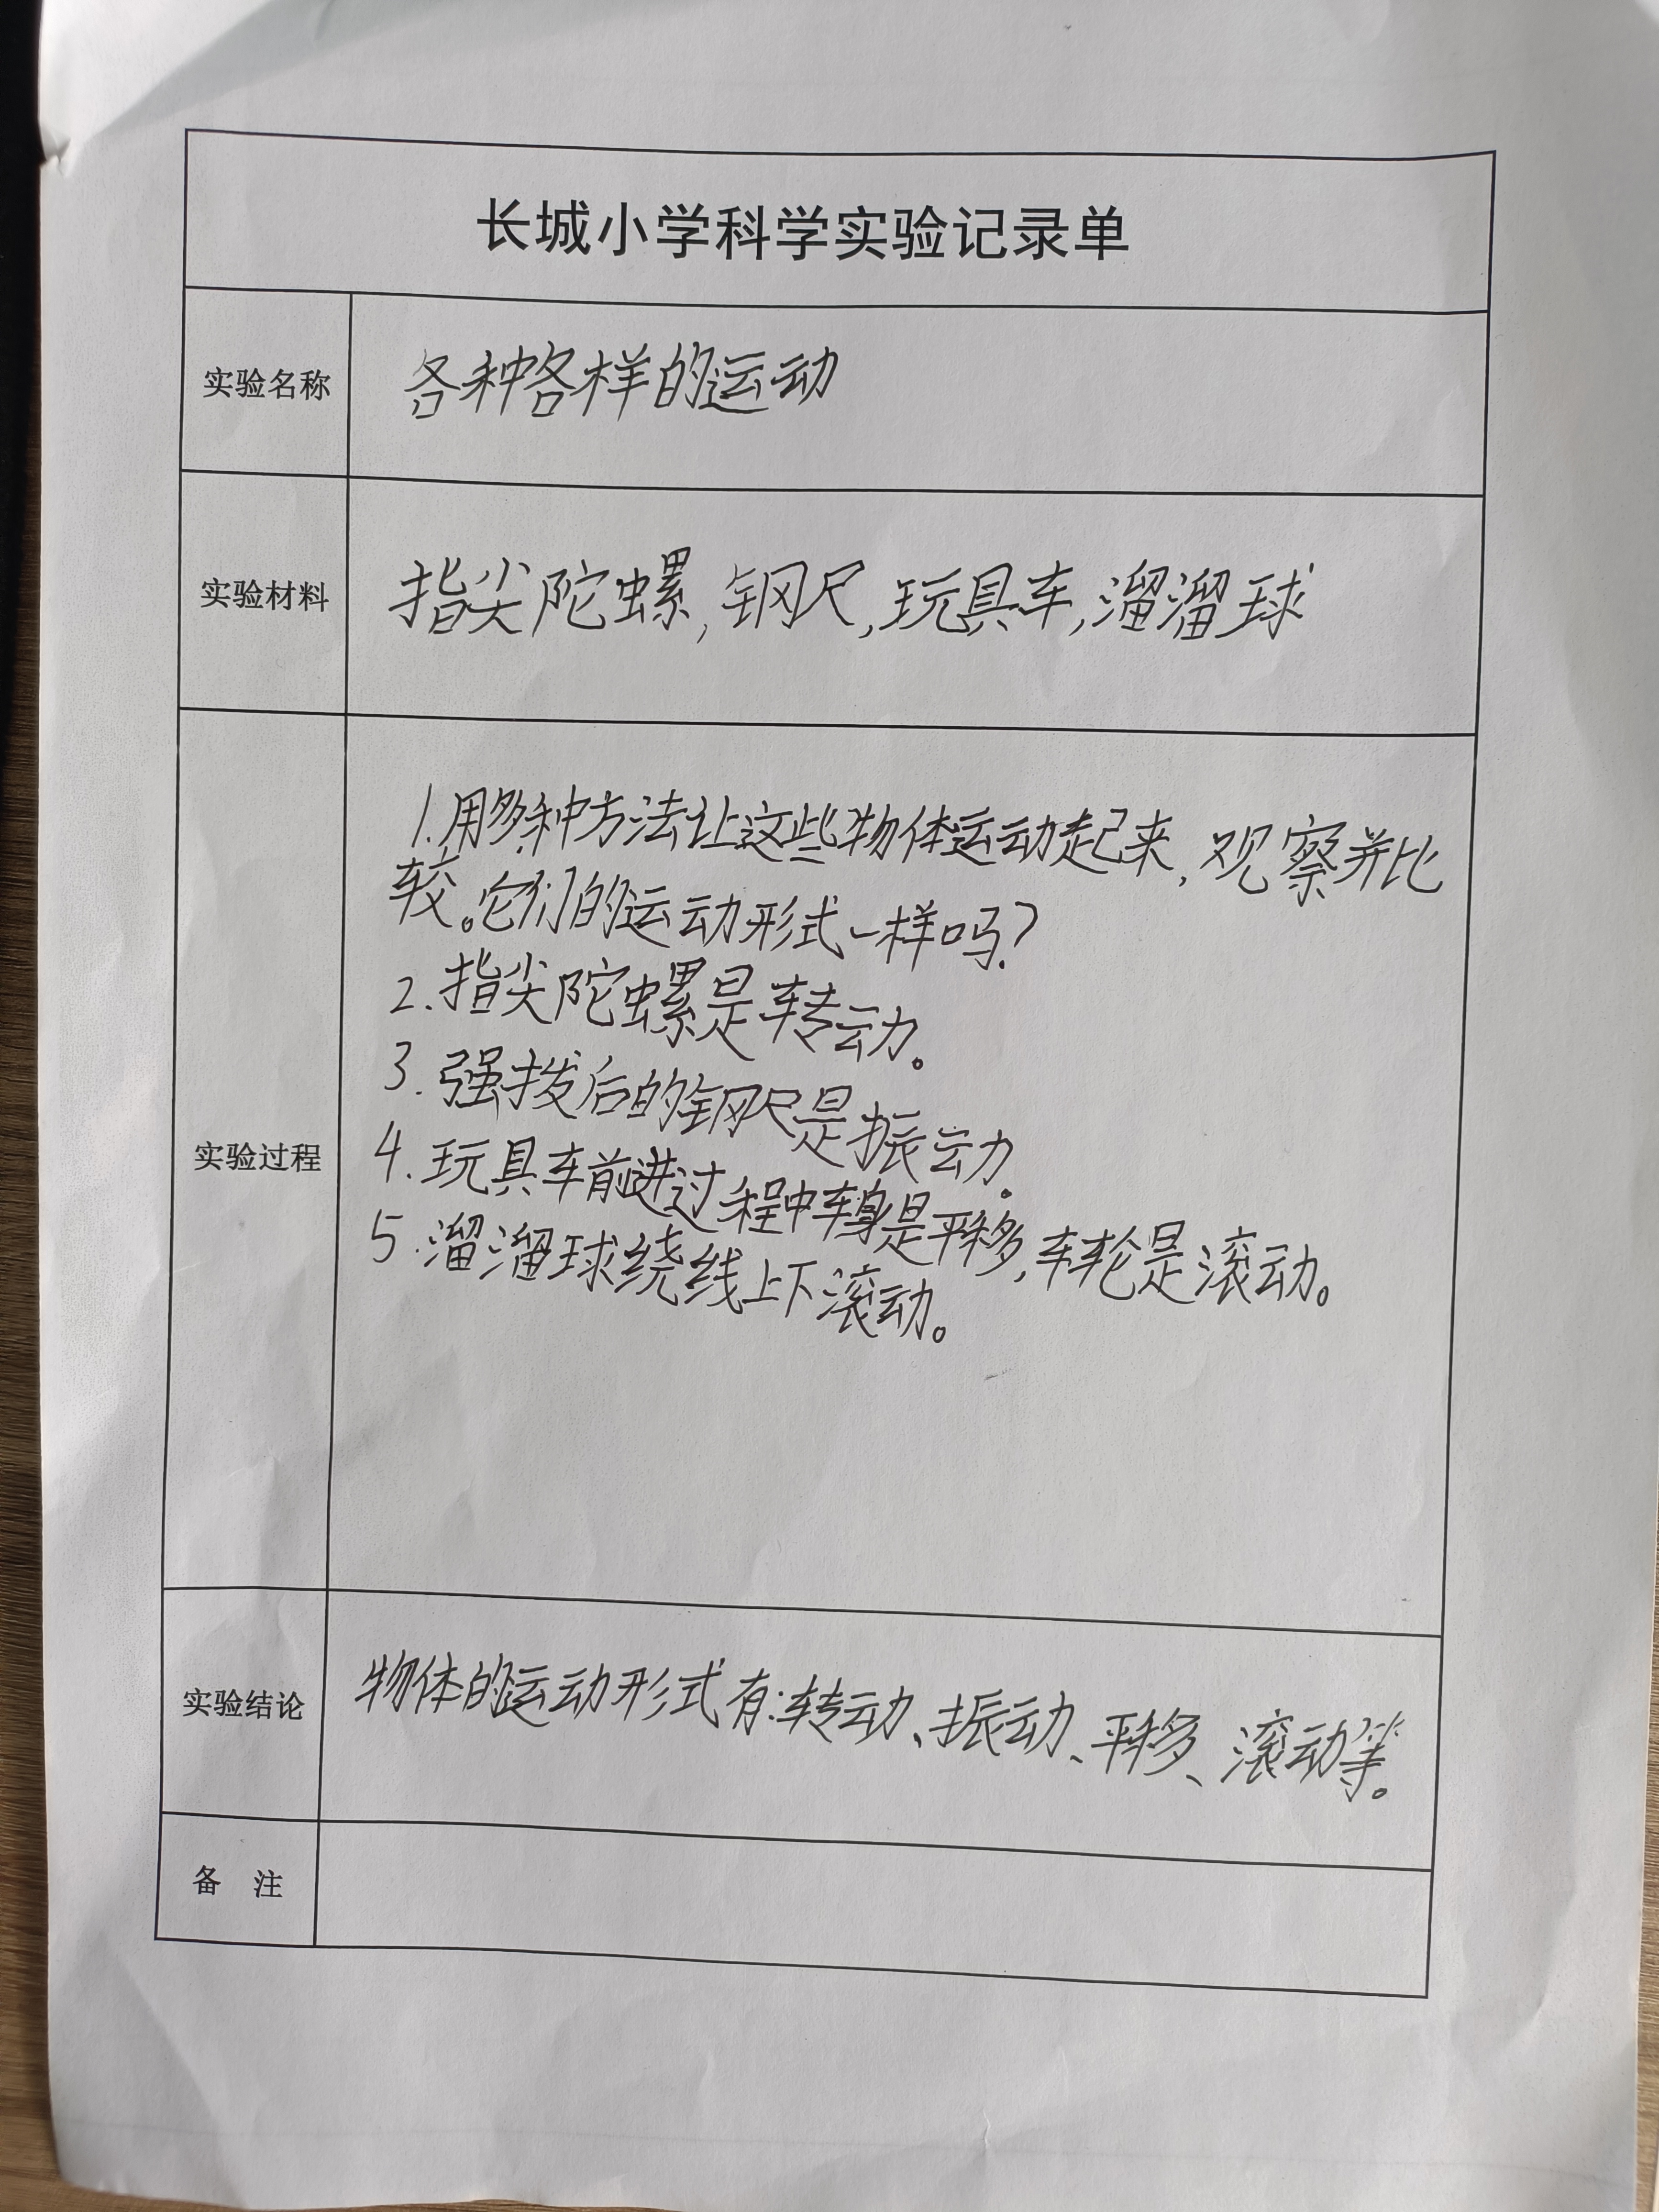 长城小学科学实验记录单
实验名称
各种各样的运动
实验材料
指尖陀螺,钢尺,玩具车,溜溜球
实验过程
1.用多种方法让这些物体运动起来,观察并比
较。它们的运动形式一样吗?
2.指尖陀螺是转动。
3.强拨后的钢尺是振动。
4.玩具车前进过程中车身是平移,车轮是滚动。
5.溜溜球绕线上下滚动。
实验结论
物体的运动形式有:转动、振动、平移、滚动等。
备 注